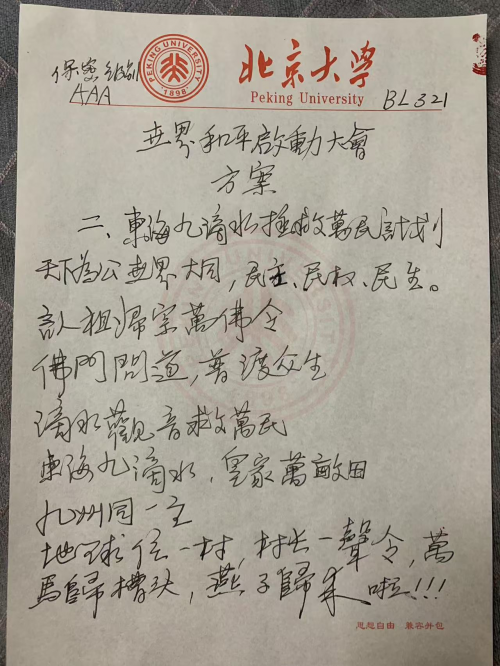 保密级别
AAA
PEKING UNIVERSITY
1898
北京大学
Peking University
BL321
世界和平啟動大會
方案
二、東海九滴水拯救萬民計划
天下為公世界大同，民主、民权、民生。
認祖归宗萬佛令
佛門問道，普渡众生
滴水觀音救萬民
東海九滴水，皇家萬畝田
九州同一主
地球住一村，村长一聲令，萬
馬歸槽头，燕子歸来啦!!!
思想自由 兼容并包